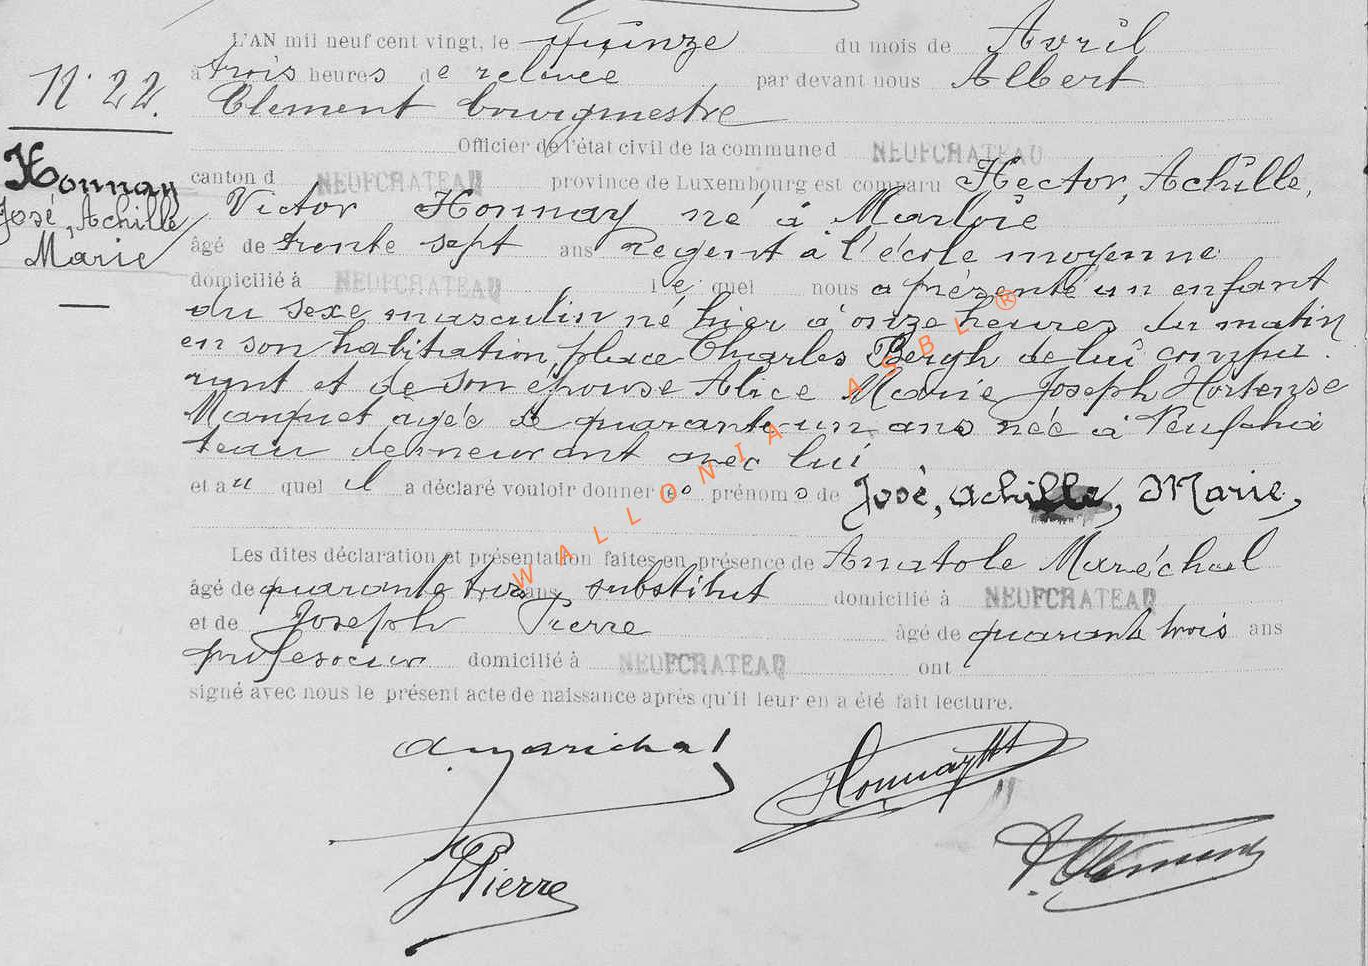 L'AN mil neuf cent vingt, le quinze du mois de Avril
à trois heures de relevée par devant nous Albert
N° 22.
Clément bourgmestre
Officier de l'état civil de la commune d NEUFCHATEAU
canton d NEUFCHATEAU province de Luxembourg est comparu Hector, Achille,
Honnay
José, Achille
Marie
Victor Honnay né à Marloie
âgé de trente sept ans régent à l'école moyenne
domicilié à NEUFCHATEAU le quel nous a présenté un enfant
du sexe masculin né hier à onze heures du matin
en son habitation, place Charles Bergh de lui compa
rant et de son épouse Alice Marie Joseph Hortense
Manquet agée de quarante un ans née à Neufcha
teau demeurant avec lui
et au quel il a déclaré vouloir donner les prénoms de José, Achille, Marie,
Les dites déclaration et présentation faites en présence de Anatole Maréchal
âgé de quarante trois ans substitut domicilié à NEUFCHATEAU
et de Joseph Pierre âgé de quarante trois ans
professeur domicilié à NEUFCHATEAU ont
signé avec nous le présent acte de naissance après qu'il leur en a été fait lecture.
A. Maréchal
Honnay
J Pierre
A. Clément
WALLONIA ASBL ®